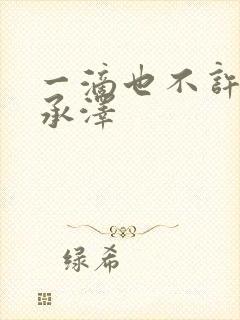 一滴也不許
承澤
绿希